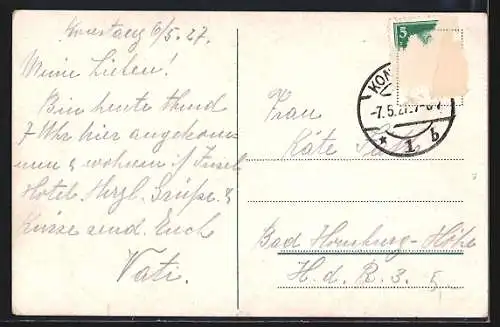 Konstanz 6/5. 27.
Meine Lieben!
Bin heute Abend
7 Uhr hier angekom-
men & wohnen i/ Insel
Hotel. Herzl. Grüße &
Küsse send. Euch
Vati.
5
KON
-7.5.27. 7-8
* 1. b
Frau
Käte
Bad Homburg-Höhe
H. d. R. 3.